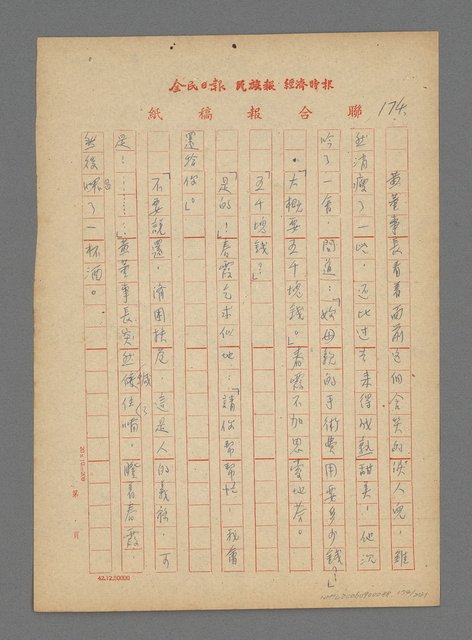 全民日報 民族報 經濟時報
聯合報稿紙
174
黃董事長看着面前這個含笑的淚人兒,雖
然消瘦了一些,還比過去來得成熟甜美,他沉
吟了一會,問道:「妳母親的手術費用要多少錢?」
「大概要五千塊錢。」春霞不加思索地答。
「五千塊錢?」
「是的!」春霞乞求似地:「請你幫幫忙,我會
還給你。」
「不要說還,濟困扶危,這是人的義務,可
是!………」黃董事長突然緘住嘴,瞪着春霞,
然後喝了一杯酒。
20×10=200
第 頁
42.12.50000